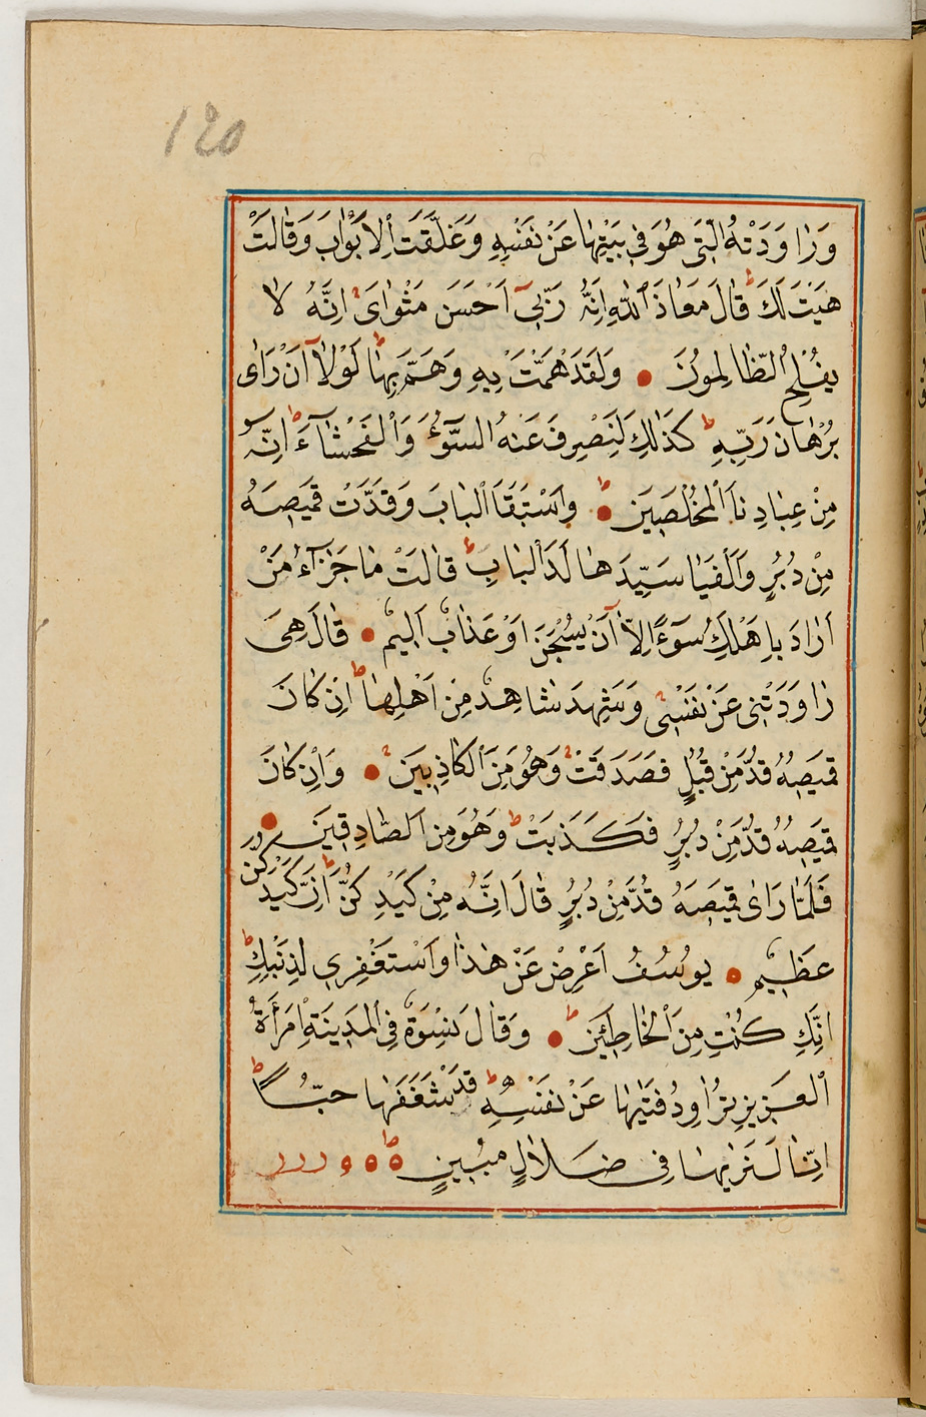 120
وَرٰاوَدَتْهُ الَّتٖى هُوَ فٖى بَيْتِهٰا عَنْ نَفْسِهِ وَغَلَّقَتِ الْاَبْوٰابَ وَقٰالَتْ
هَيْتَ لَكَ ط قٰالَ مَعٰاذَ اللّٰهِ اِنَّهُ رَبّٖى اَحْسَنَ مَثْوٰاىَ اِنَّهُ لٰا
يُفْلِحُ الظّٰالِمُونَ ● وَلَقَدْ هَمَّتْ بِهِ وَهَمَّ بِهٰا ط لَوْلٰٓا اَنْ رَاٰى
بُرْهٰانَ رَبِّهِ ط كَذٰلِكَ لِنَصْرِفَ عَنْهُ السُّوٓءَ وَالْفَحْشٰٓاءَ ط اِنَّهُ
مِنْ عِبٰادِنَا الْمُخْلَصٖينَ ● وَاسْتَبَقَا الْبٰابَ وَقَدَّتْ قَمٖيصَهُ
مِنْ دُبُرٍ وَاَلْفَيٰا سَيِّدَهٰا لَدَا الْبٰابِ ط قٰالَتْ مٰا جَزٰٓاءُ مَنْ
اَرٰادَ بِاَهْلِكَ سُوٓءًا اِلّٰٓا اَنْ يُسْجَنَ اَوْ عَذٰابٌ اَلٖيمٌ ● قٰالَ هِىَ
رٰاوَدَتْنٖى عَنْ نَفْسٖى وَشَهِدَ شٰاهِدٌ مِنْ اَهْلِهٰا ط اِنْ كٰانَ
قَمٖيصُهُ قُدَّ مِنْ قُبُلٍ فَصَدَقَتْ وَهُوَ مِنَ الْكٰاذِبٖينَ ● وَاِنْ كٰانَ
قَمٖيصُهُ قُدَّ مِنْ دُبُرٍ فَكَذَبَتْ ط وَهُوَ مِنَ الصّٰادِقٖينَ ●
فَلَمّٰا رَاٰى قَمٖيصَهُ قُدَّ مِنْ دُبُرٍ قٰالَ اِنَّهُ مِنْ كَيْدِكُنَّ ط اِنَّ كَيْدَكُنَّ
عَظٖيمٌ ● يُوسُفُ اَعْرِضْ عَنْ هٰذٰا وَاسْتَغْفِرٖى لِذَنْبِكِ ط
اِنَّكِ كُنْتِ مِنَ الْخٰاطِـٖٔينَ ● وَقٰالَ نِسْوَةٌ فِى الْمَدٖينَةِ امْرَأَةُ
الْعَزٖيزِ تُرٰاوِدُ فَتٰيهٰا عَنْ نَفْسِهِ ط قَدْ شَغَفَهٰا حُبًّا ط
اِنّٰا لَنَرٰيهٰا فٖى ضَلٰالٍ مُبٖينٍ